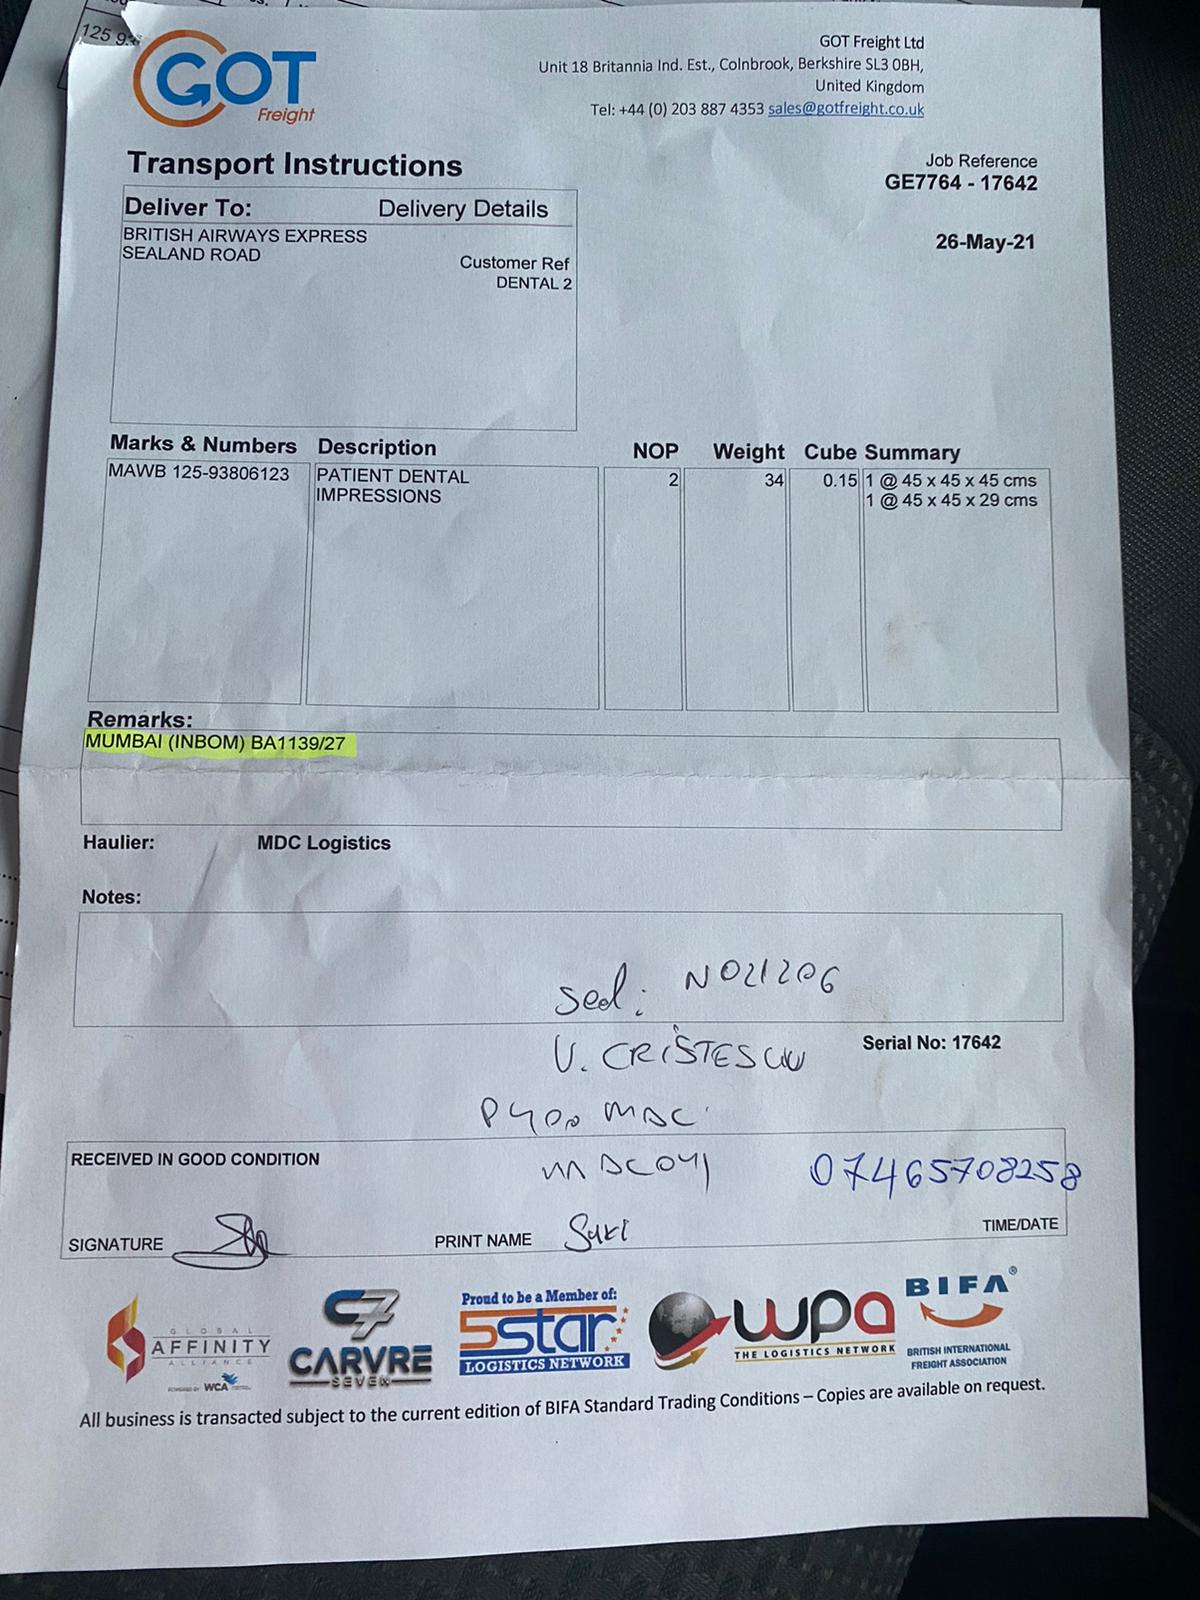 125 93
GOT
Freight
GOT Freight Ltd
Unit 18 Britannia Ind. Est., Colnbrook, Berkshire SL3 0BH,
United Kingdom
Tel: +44 (0) 203 887 4353 sales@gotfreight.co.uk
Transport Instructions
Job Reference
GE7764 - 17642
26-May-21
Deliver To: Delivery Details
BRITISH AIRWAYS EXPRESS
SEALAND ROAD
Customer Ref
DENTAL 2
Marks & Numbers Description NOP Weight Cube Summary
MAWB 125-93806123 PATIENT DENTAL 2 34 0.15 1 @ 45 x 45 x 45 cms
IMPRESSIONS 1 @ 45 x 45 x 29 cms
Remarks:
MUMBAI (INBOM) BA1139/27
Haulier: MDC Logistics
Notes:
Seal: N021206
V. CRISTESCU
Serial No: 17642
P400 MDC
RECEIVED IN GOOD CONDITION
MDC041 07465708258
SIGNATURE PRINT NAME Suki TIME/DATE
GLOBAL
AFFINITY
ALLIANCE
POWERED BY WCA
C7
CARVRE
SEVEN
Proud to be a Member of:
5star
LOGISTICS NETWORK
wpa
THE LOGISTICS NETWORK
BIFA®
BRITISH INTERNATIONAL
FREIGHT ASSOCIATION
All business is transacted subject to the current edition of BIFA Standard Trading Conditions – Copies are available on request.